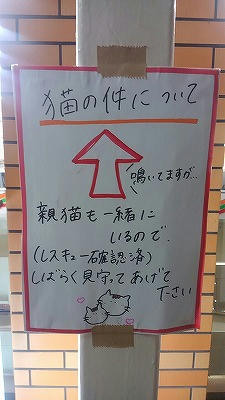 猫の件について
鳴いてますが…
親猫も一緒に
いるので、
(レスキュー確認済)
しばらく見守ってあげて
下さい